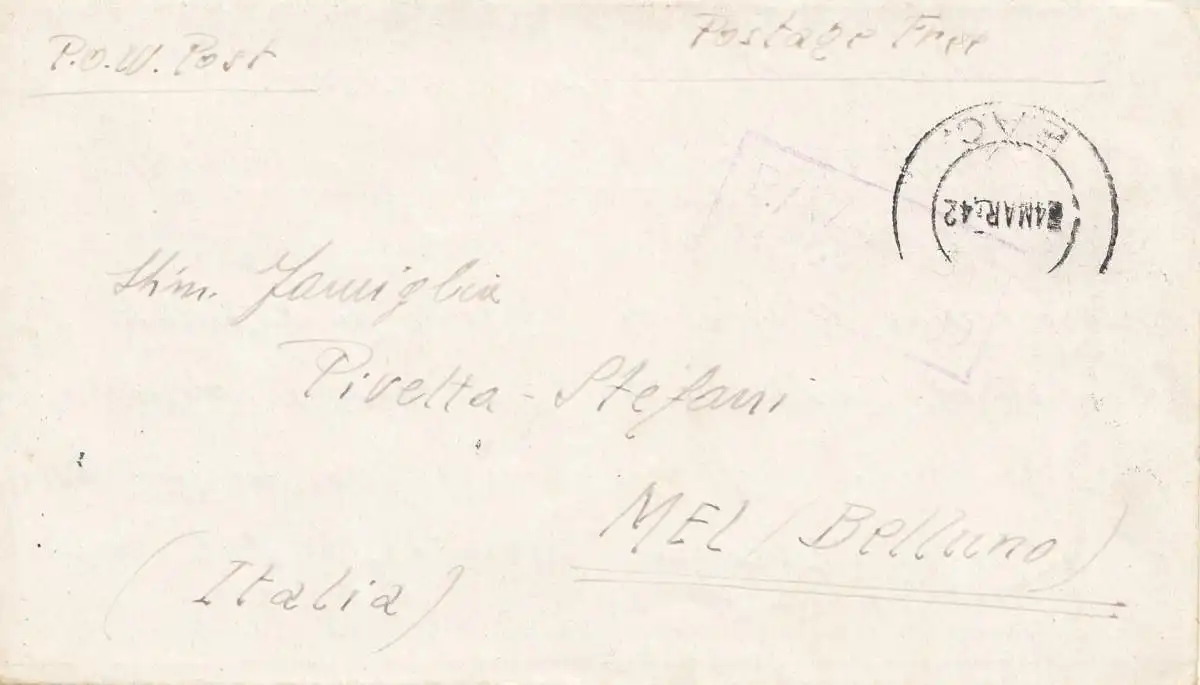 P.O.W. Post
Postage Free
E.A.C.
24MAR.42
P.W.
Stim. Famiglia
Pivetta - Stefani
MEL (Belluno)
(Italia)